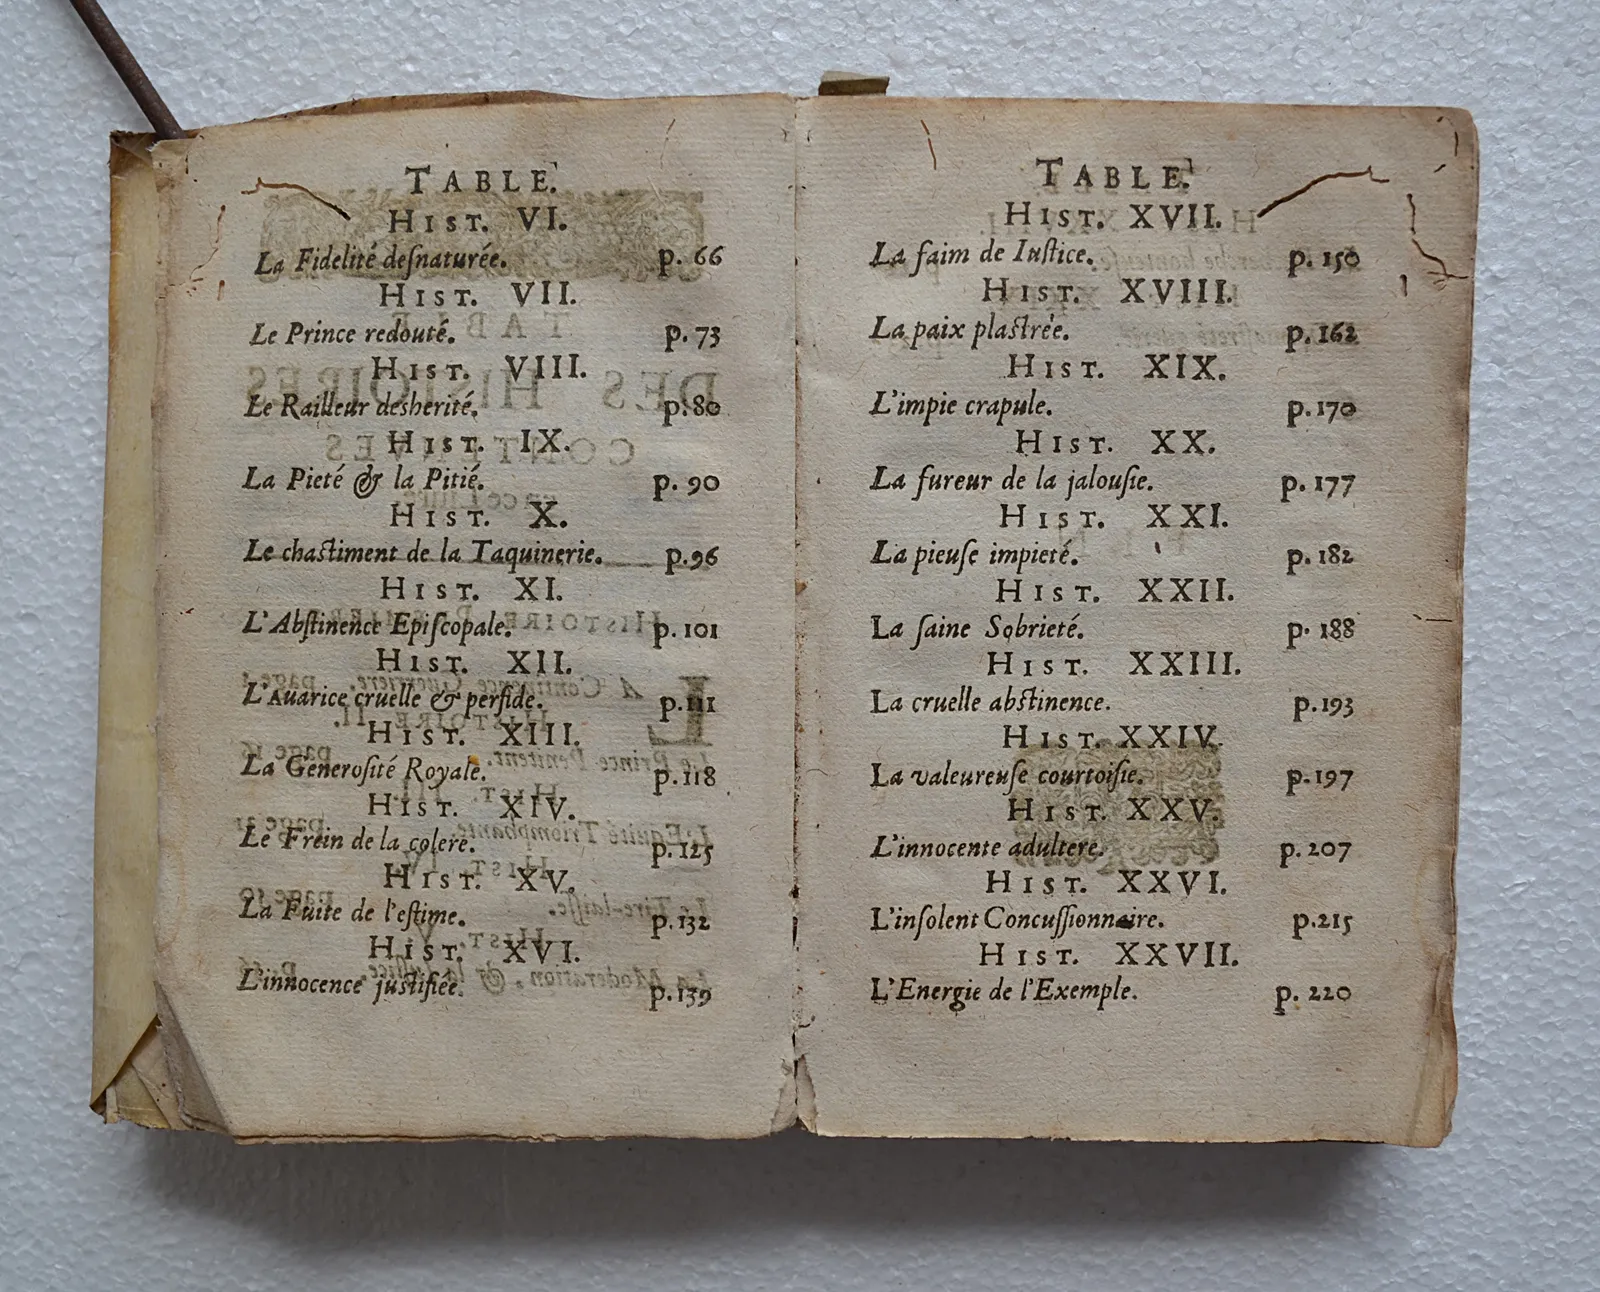 TABLE.
HIST. VI.
La Fidelité deſnaturée. p. 66
HIST. VII.
Le Prince redouté. p. 73
HIST. VIII.
Le Railleur desherité. p. 80
HIST. IX.
La Pieté & la Pitié. p. 90
HIST. X.
Le chaſtiment de la Taquinerie. p. 96
HIST. XI.
L'Abſtinence Epiſcopale. p. 101
HIST. XII.
L'Auarice cruelle & perfide. p. 111
HIST. XIII.
La Generoſité Royale. p. 118
HIST. XIV.
Le Frein de la colere. p. 125
HIST. XV.
La Fuite de l'eſtime. p. 132
HIST. XVI.
L'innocence juſtifiée. p. 139
TABLE.
HIST. XVII.
La faim de Iuſtice. p. 150
HIST. XVIII.
La paix plaſtrée. p. 162
HIST. XIX.
L'impie crapule. p. 170
HIST. XX.
La fureur de la jalouſie. p. 177
HIST. XXI.
La pieuſe impieté. p. 182
HIST. XXII.
La ſaine Sobrieté. p. 188
HIST. XXIII.
La cruelle abſtinence. p. 193
HIST. XXIV.
La valeureuſe courtoiſie. p. 197
HIST. XXV.
L'innocente adultere. p. 207
HIST. XXVI.
L'inſolent Concuſſionnaire. p. 215
HIST. XXVII.
L'Energie de l'Exemple. p. 220